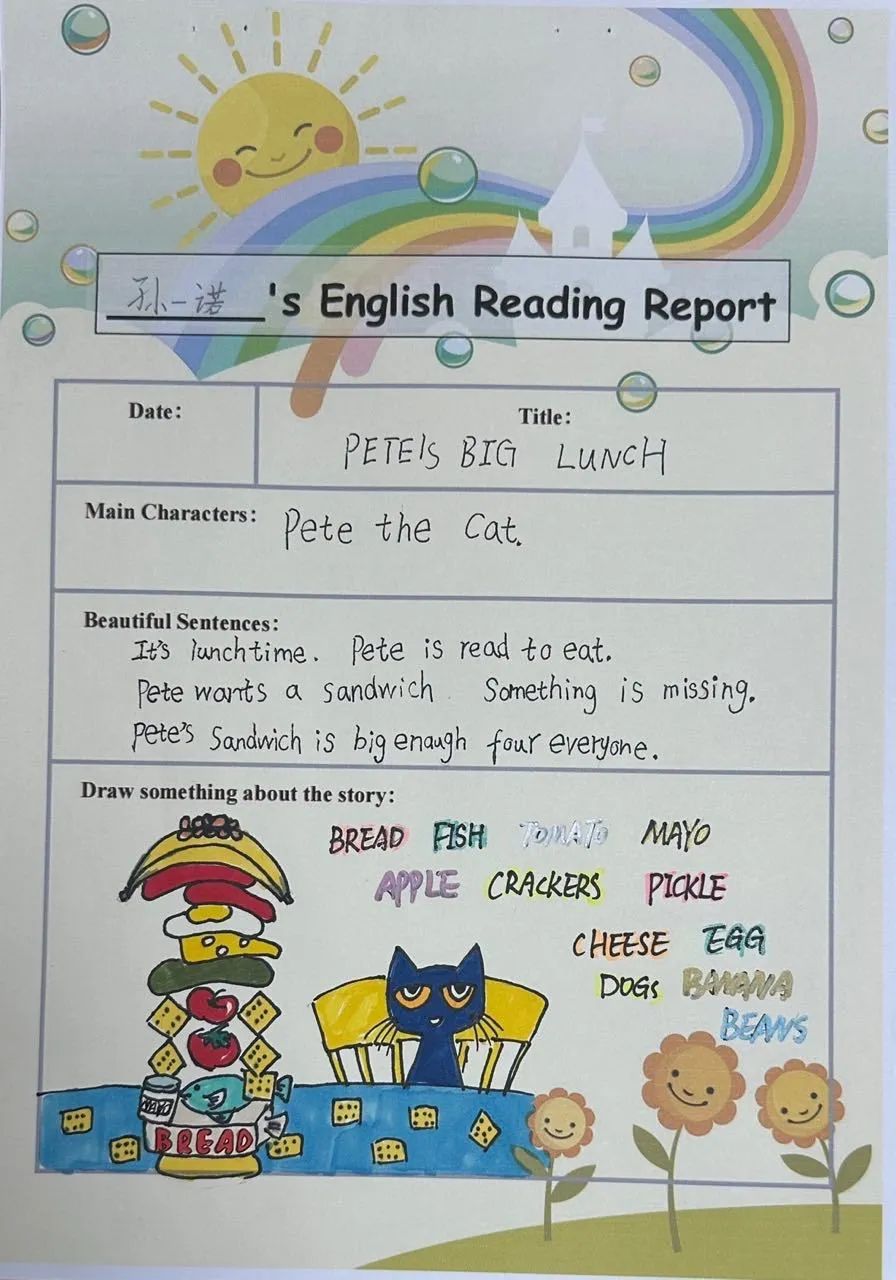 孙一诺's English Reading Report
Date:
Title:
PETE'S BIG LUNCH
Main Characters: Pete the Cat.
Beautiful Sentences:
It's lunchtime. Pete is read to eat.
Pete wants a sandwich Something is missing.
Pete's Sandwich is big enaugh four everyone.
Draw something about the story:
BREAD FISH TOMATO MAYO
APPLE CRACKERS PICKLE
CHEESE EGG
DOGS BANANA
BEANS
MAYO
BREAD